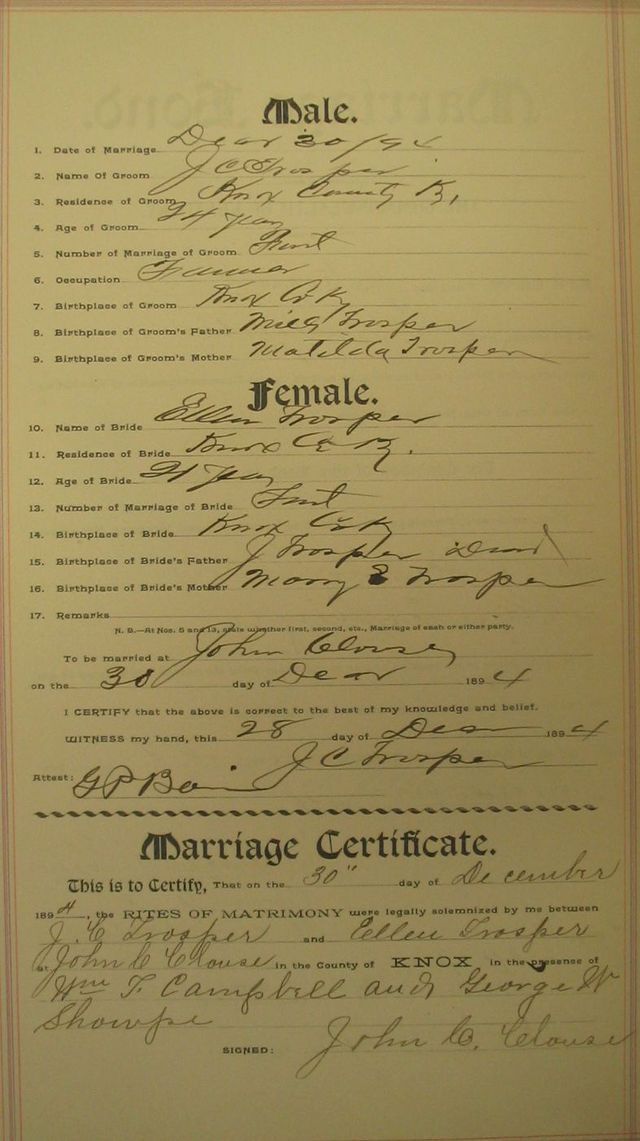 Male.
1. Date of Marriage Dear 30/94
2. Name Of Groom J C Trosper
3. Residence of Groom Knox County Ky,
4. Age of Groom 24 years
5. Number of Marriage of Groom First
6. Occupation Farmer
7. Birthplace of Groom Knox Co Ky
8. Birthplace of Groom's Father Trosper
9. Birthplace of Groom's Mother Matilda Trosper
Female.
10. Name of Bride Ellen Trosper
11. Residence of Bride Knox Co Ky.
12. Age of Bride 21 years
13. Number of Marriage of Bride First
14. Birthplace of Bride Knox Co Ky
15. Birthplace of Bride's Father J Trosper
16. Birthplace of Bride's Mother Mary E Trosper
17. Remarks
N. B.—At Nos. 5 and 13, state whether first, second, etc., Marriage of each or either party.
To be married at John Clouse
on the 30 day of Dear 1894
I CERTIFY that the above is correct to the best of my knowledge and belief.
WITNESS my hand, this 28 day of Dear 1894
J C Trosper
Attest: G P Bain
Marriage Certificate.
This is to Certify, That on the 30" day of December
1894, the RITES OF MATRIMONY were legally solemnized by me between
J. C Trosper and Ellen Trosper
at John C Clouse in the County of KNOX in the presence of
Wm F. Campbell and George W
SIGNED: John C. Clouse